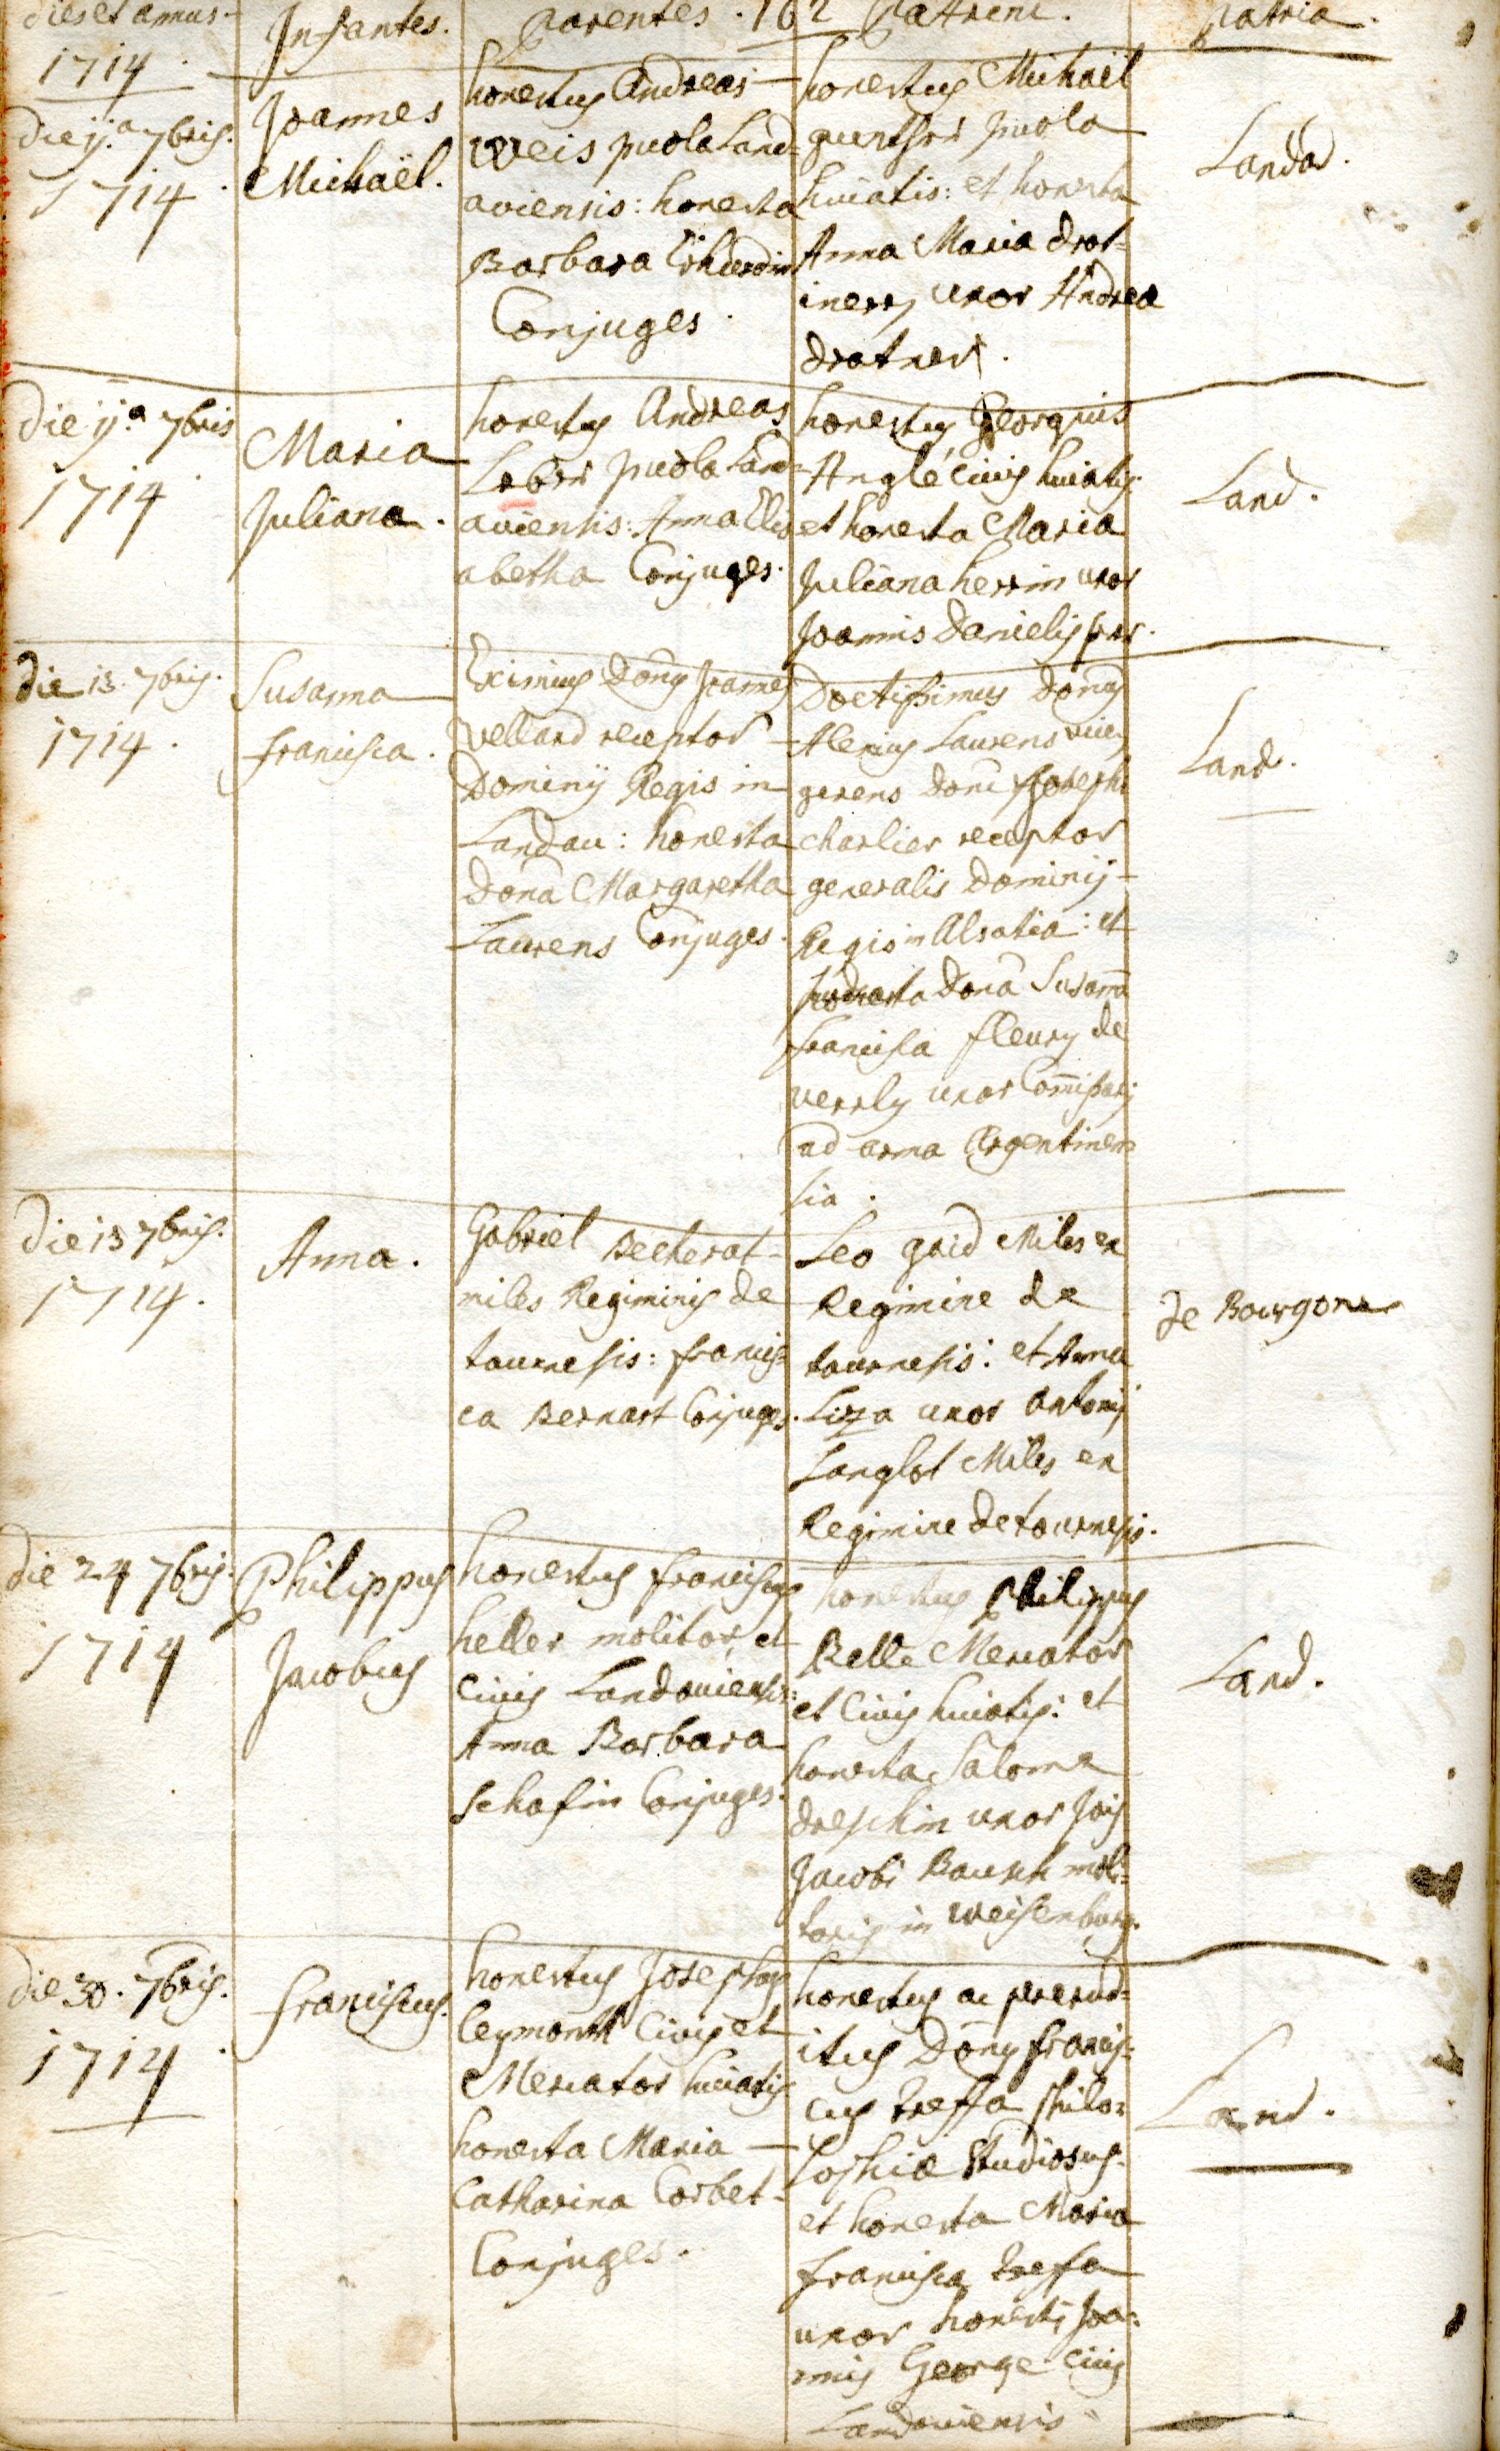 dies et annus. Infantes. parentes. 162 patrini. patria.
1714.
die ij.a 7bris.
1714.
Joannes
Michaël.
honestus Andreas
Weis incola Land=
aviensis: honesta
Barbara
Conjuges.
honestus Michaël
gunther incola
huiatis: et honesta
Anna Maria drot=
inerin uxor Andreæ
drotner.
Landav.
die ij.a 7bris
1714.
Maria
Juliana.
honestus Andreas
Leber incola Land=
aviensis: Anna Elis
abetha Conjuges.
honestus Georgius
Angle civis huiatis
et honesta Maria
Juliana herrin uxor
Joannis Danielis
Land.
die 13 7bris.
1714.
Susanna
francisca.
Eximius Dom̄s Joannes
Vellard receptor
Dominij Regis in
Landau: honesta
Dom̄a Margaretha
Laurens Conjuges.
Doctissimus Dom̄s
Alexius Laurens vices
gerens Domī Josephi
Charlier receptor
generalis Dominij
Regis in Alsatia: et
honesta Dom̄a Susan̄a
francisca fleury de
verrly uxor Com̄issarij
ad arma Argentinen
sia.
Land.
die 13 7bris.
1714.
Anna.
Gabriel Becherat
miles Regiminis de
tournesis: francis=
ca Bernart Conjuges.
Leo gaid Miles ex
Regimine de
tournesis: et Anna
Lizza uxor Antonij
Langlot Miles ex
Regimine de tournesis.
de Bourgone
die 24 7bris.
1714
Philippus
Jacobus
honestus franciscus
heller molitor et
civis Landaviensis:
Anna Barbara
Schafin Conjuges.
honestus Philippus
Belle Mercator
et Civis huiatis: et
honesta Salome
dreschin uxor Jois
Jacobi Bausch moli=
toris in Weisenburg.
Land.
die 30. 7bris.
1714.
franciscus.
honestus Josephus
Ceymont Civis et
Mercator huiatis
honesta Maria
Catharina Corbet
Conjuges.
honestus ac pererud=
itus Dom̄s francis=
cus treffa philo=
sophiæ Studiosus.
et honesta Maria
francisca trefa
uxor honesti Joa=
nnis George civis
Landaviensis
Land.